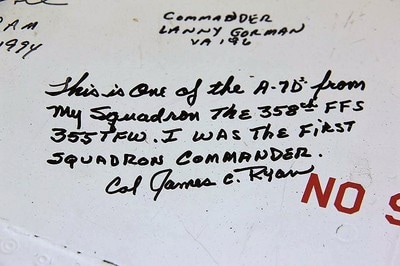 AM
1994
COMMANDER
LANNY GORMAN
VA 196
This is One of the A-7Ds from
My Squadron THE 358th FFS
355 TFW. I WAS THE FIRST
SQUADRON COMMANDER.
Col James C. Ryan
NO S